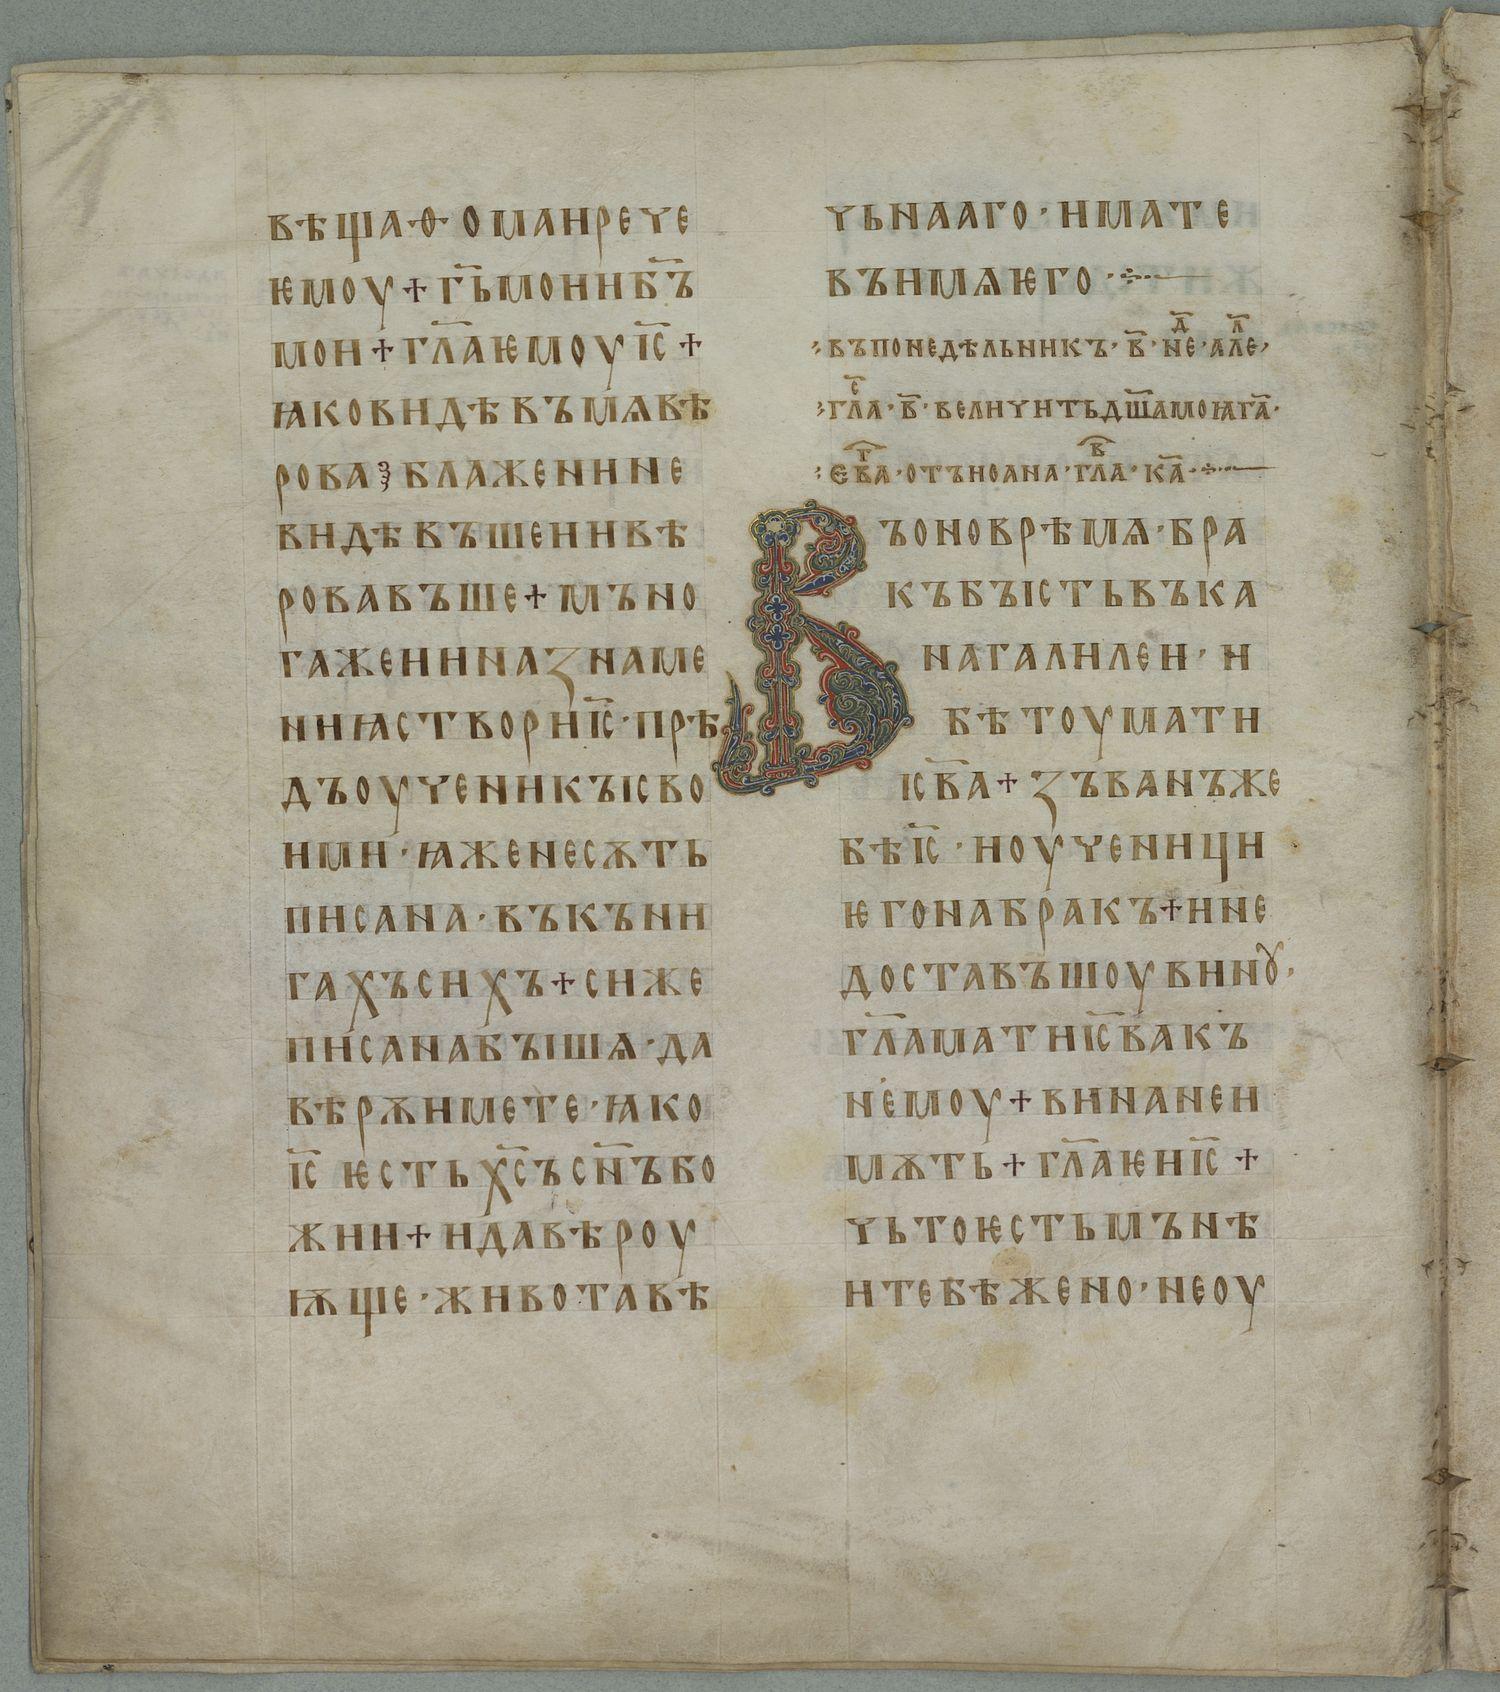 вѣща·ѳ·оманрече
ѥмоу+г҃ьмоииб҃ъ
мои+гл҃аѥмоуіс҃+
ꙗковидѣвъмѧвѣ
рова⁘блаженине
видѣвъшеиивѣ
ровавъше+мъно
гажеииназнаме
ниꙗствориіс҃·прѣ
дъоученикꙑсво
ими·ꙗженесѫть
писана·въкъни
гахъсихъ+сиже
писанабꙑшѧ·да
вѣрѫимете·ꙗко
іс҃ ѥстьхс҃ъсн҃ъбо
жии+идавѣроу
ѭще·животавѣ
чьнааго·имате
въимѧѥго·
въпонедѣльникъ·в҃·неⷣ·алеⷧ
глаⷭ·в҃·величитьдш҃амоꙗга҃·
еваⷢ·отъиоана·глаⷡ·ка҃·
Въоноврѣмѧ·бра
къбꙑстьвъка
нагалилеи·и
бѣтоумати
ісв҃а+зъванъже
бѣіс҃·иоученици
ѥгонабракъ+ине
доставъшоувинꙋ·
гл҃аматиісв҃акъ
немоу+винанеи
мѫть+гл҃аѥиіс҃+
чьтоѥстьмънѣ
итебѣжено·неоу